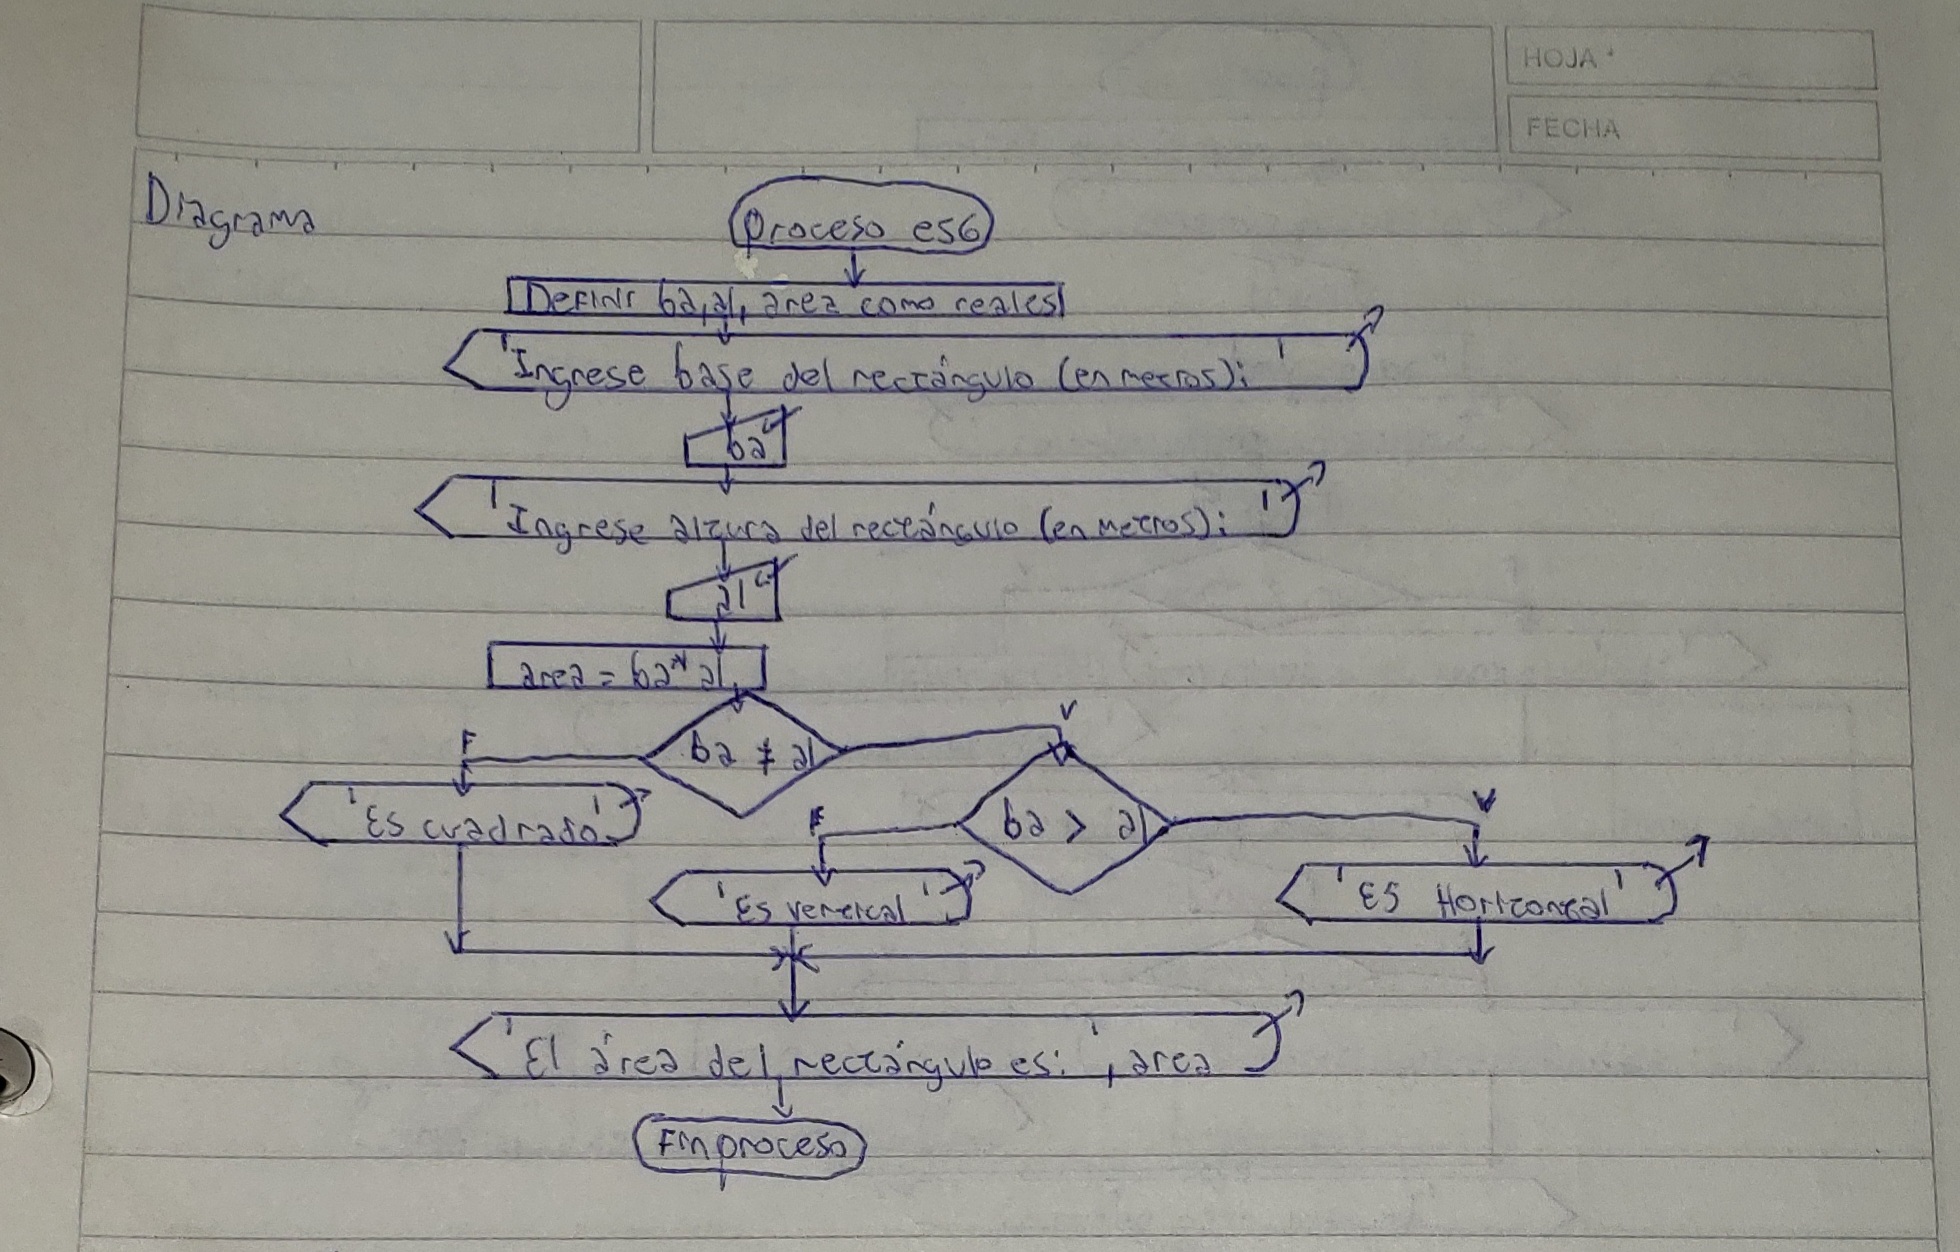 HOJA
FECHA
Diagrama
proceso es6
Definir ba, al, area como reales
'Ingrese base del rectángulo (en metros): '
ba
'Ingrese altura del rectángulo (en metros): '
al
area = ba * al
F
ba ≠ al
V
'Es cuadrado'
F
ba > al
V
'Es vertical'
'ES Horizontal'
'El área del rectángulo es: ', area
Finproceso